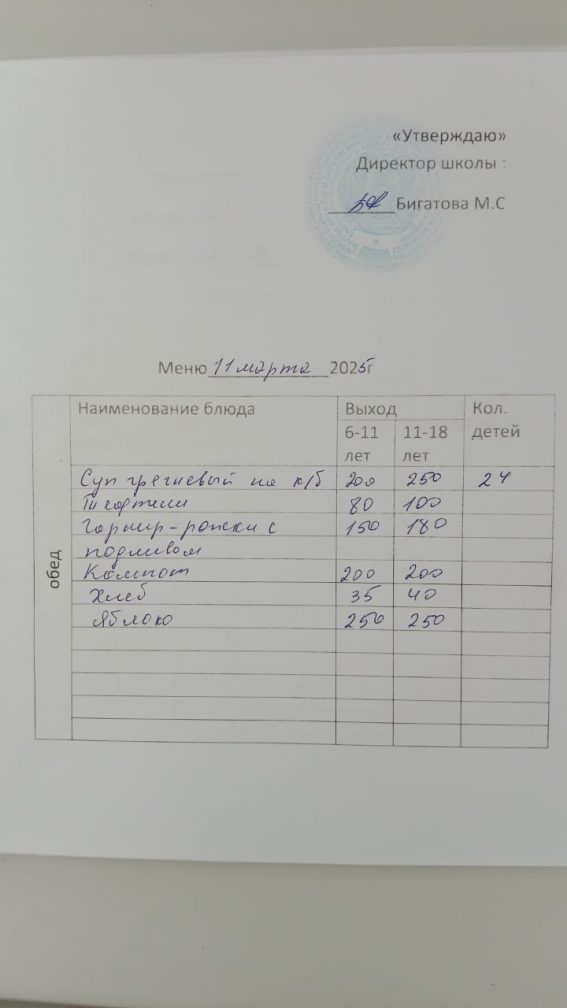 «Утверждаю»
Директор школы :
Бигатова М.С
Меню 11 марта 2025г
Наименование блюда Выход Кол. детей
6-11 лет 11-18 лет
обед
Суп гречневый на к/б 200 250 24
Тефтели 80 100
Гарнир-рожки с 150 180
подливом
Компот 200 200
Хлеб 35 40
Яблоко 250 250